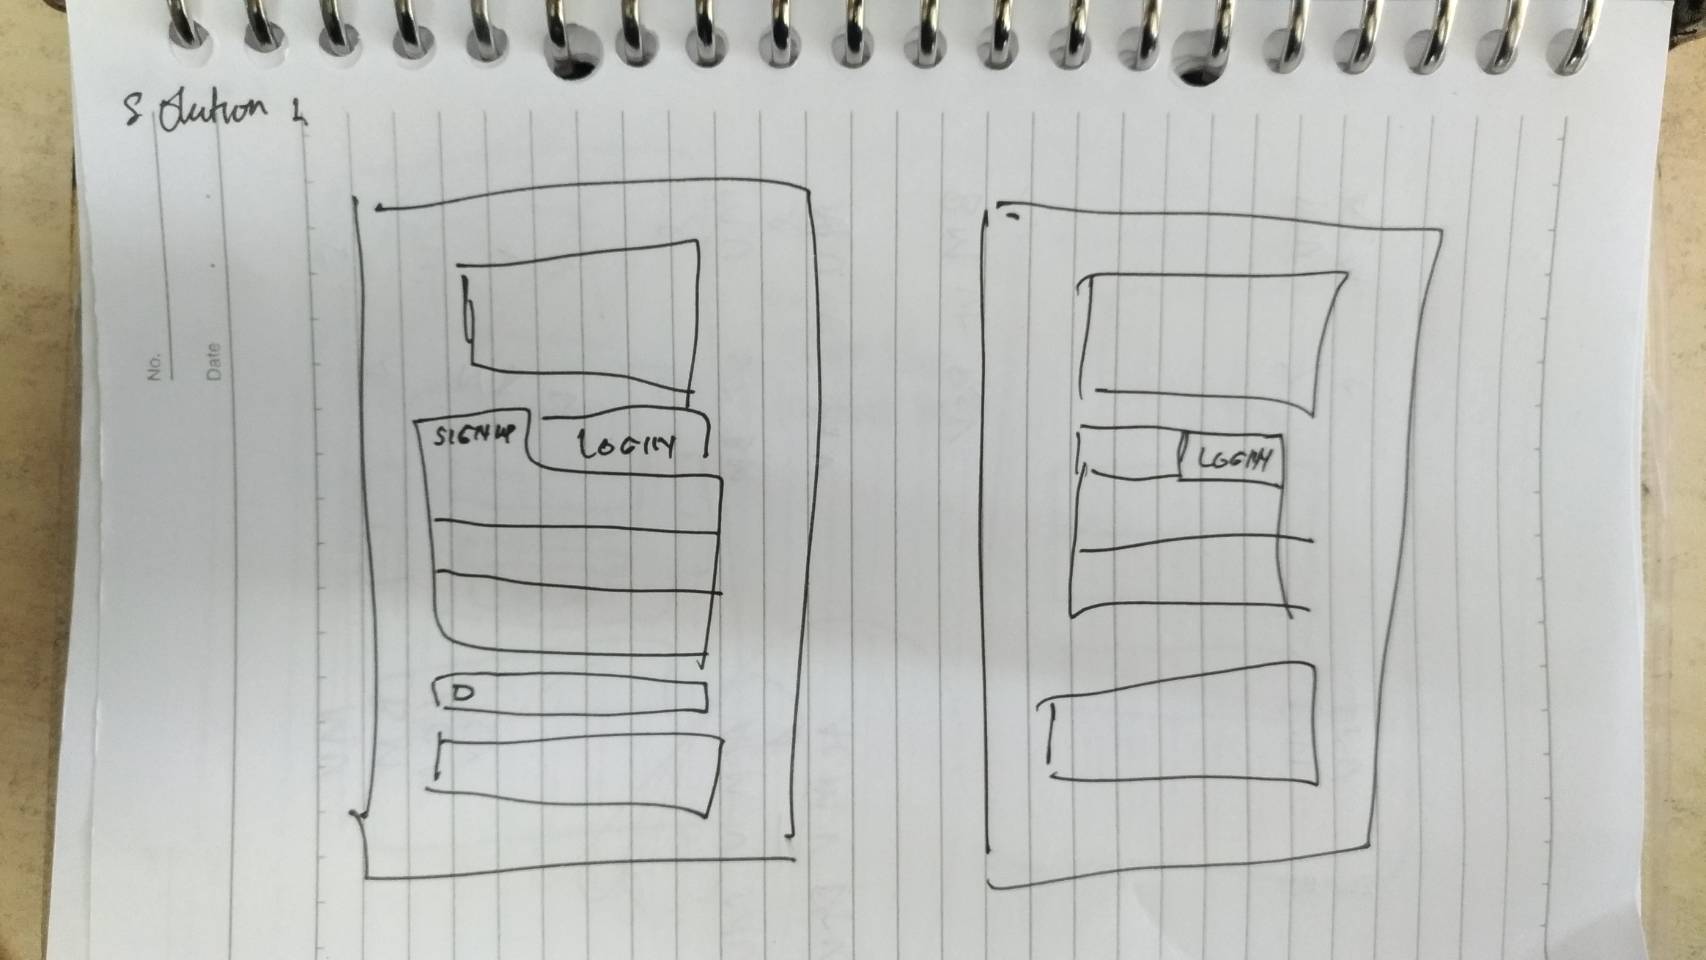 Solution 1
No.
Date
SIGNUP LOGIN
LOGIN
D